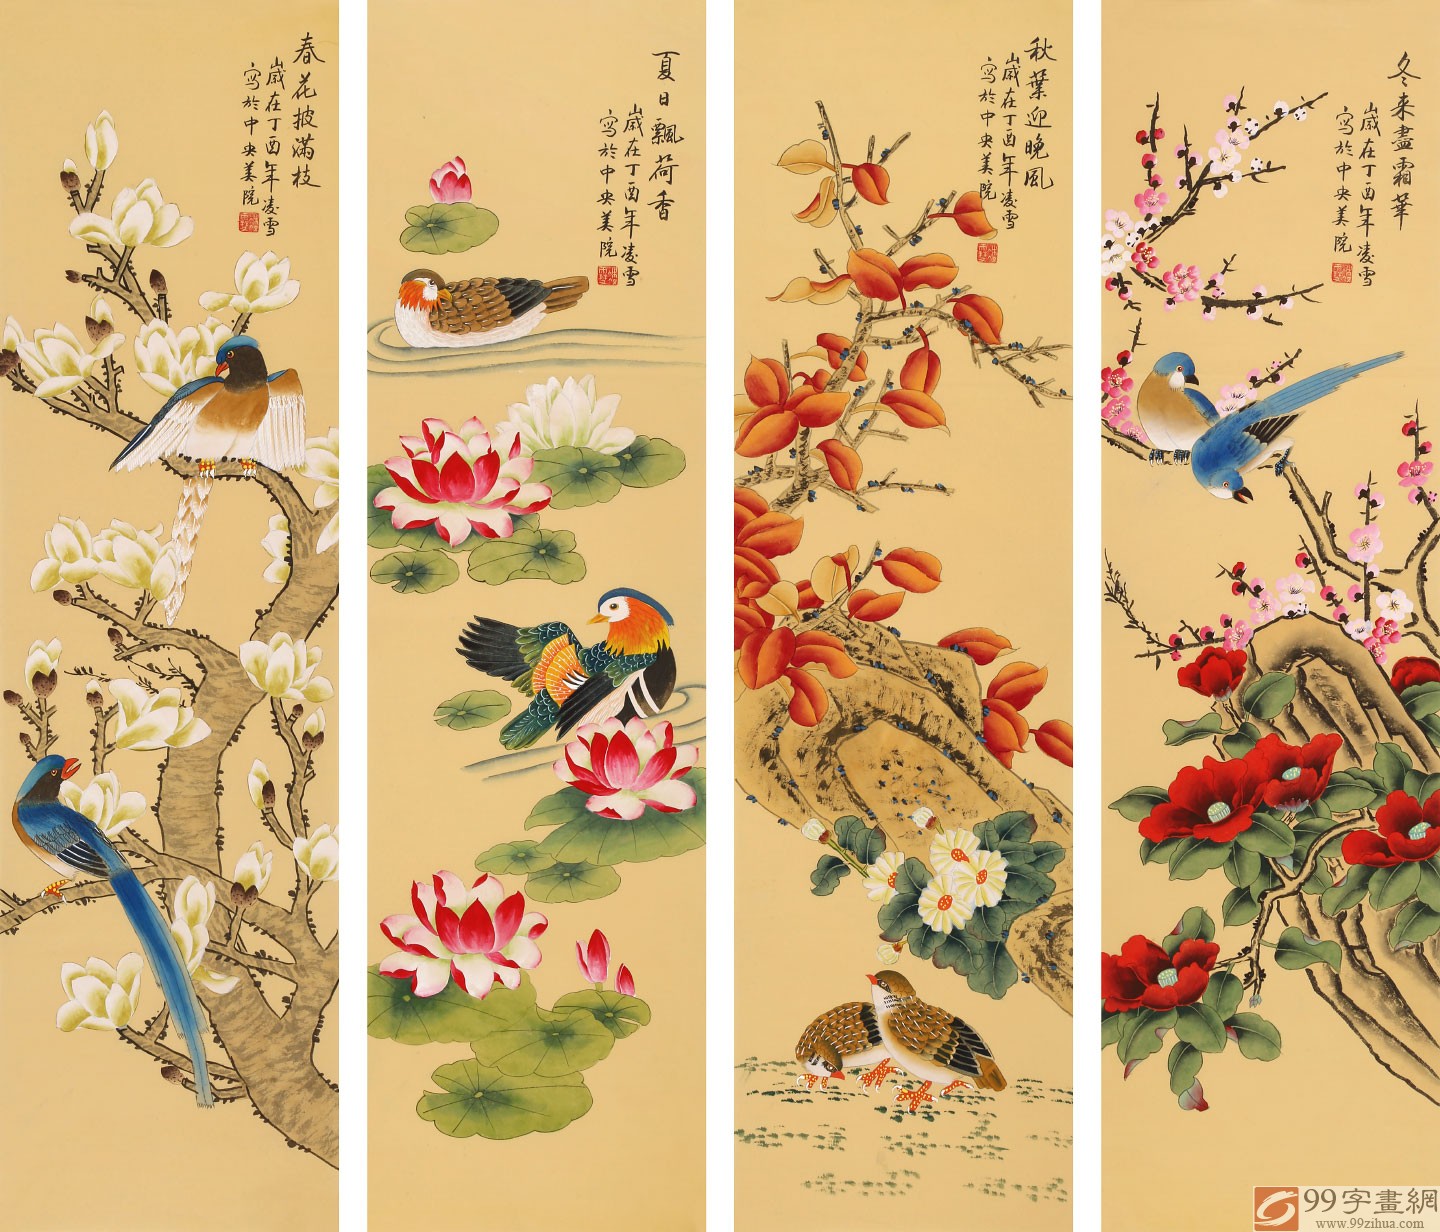 春花披滿枝
歲在丁酉年凌雪
寫於中央美院
夏日飄荷香
歲在丁酉年凌雪
寫於中央美院
秋葉迎晚風
歲在丁酉年凌雪
寫於中央美院
冬来盡霜華
歲在丁酉年凌雪
寫於中央美院
99字畫網
www.99zihua.com